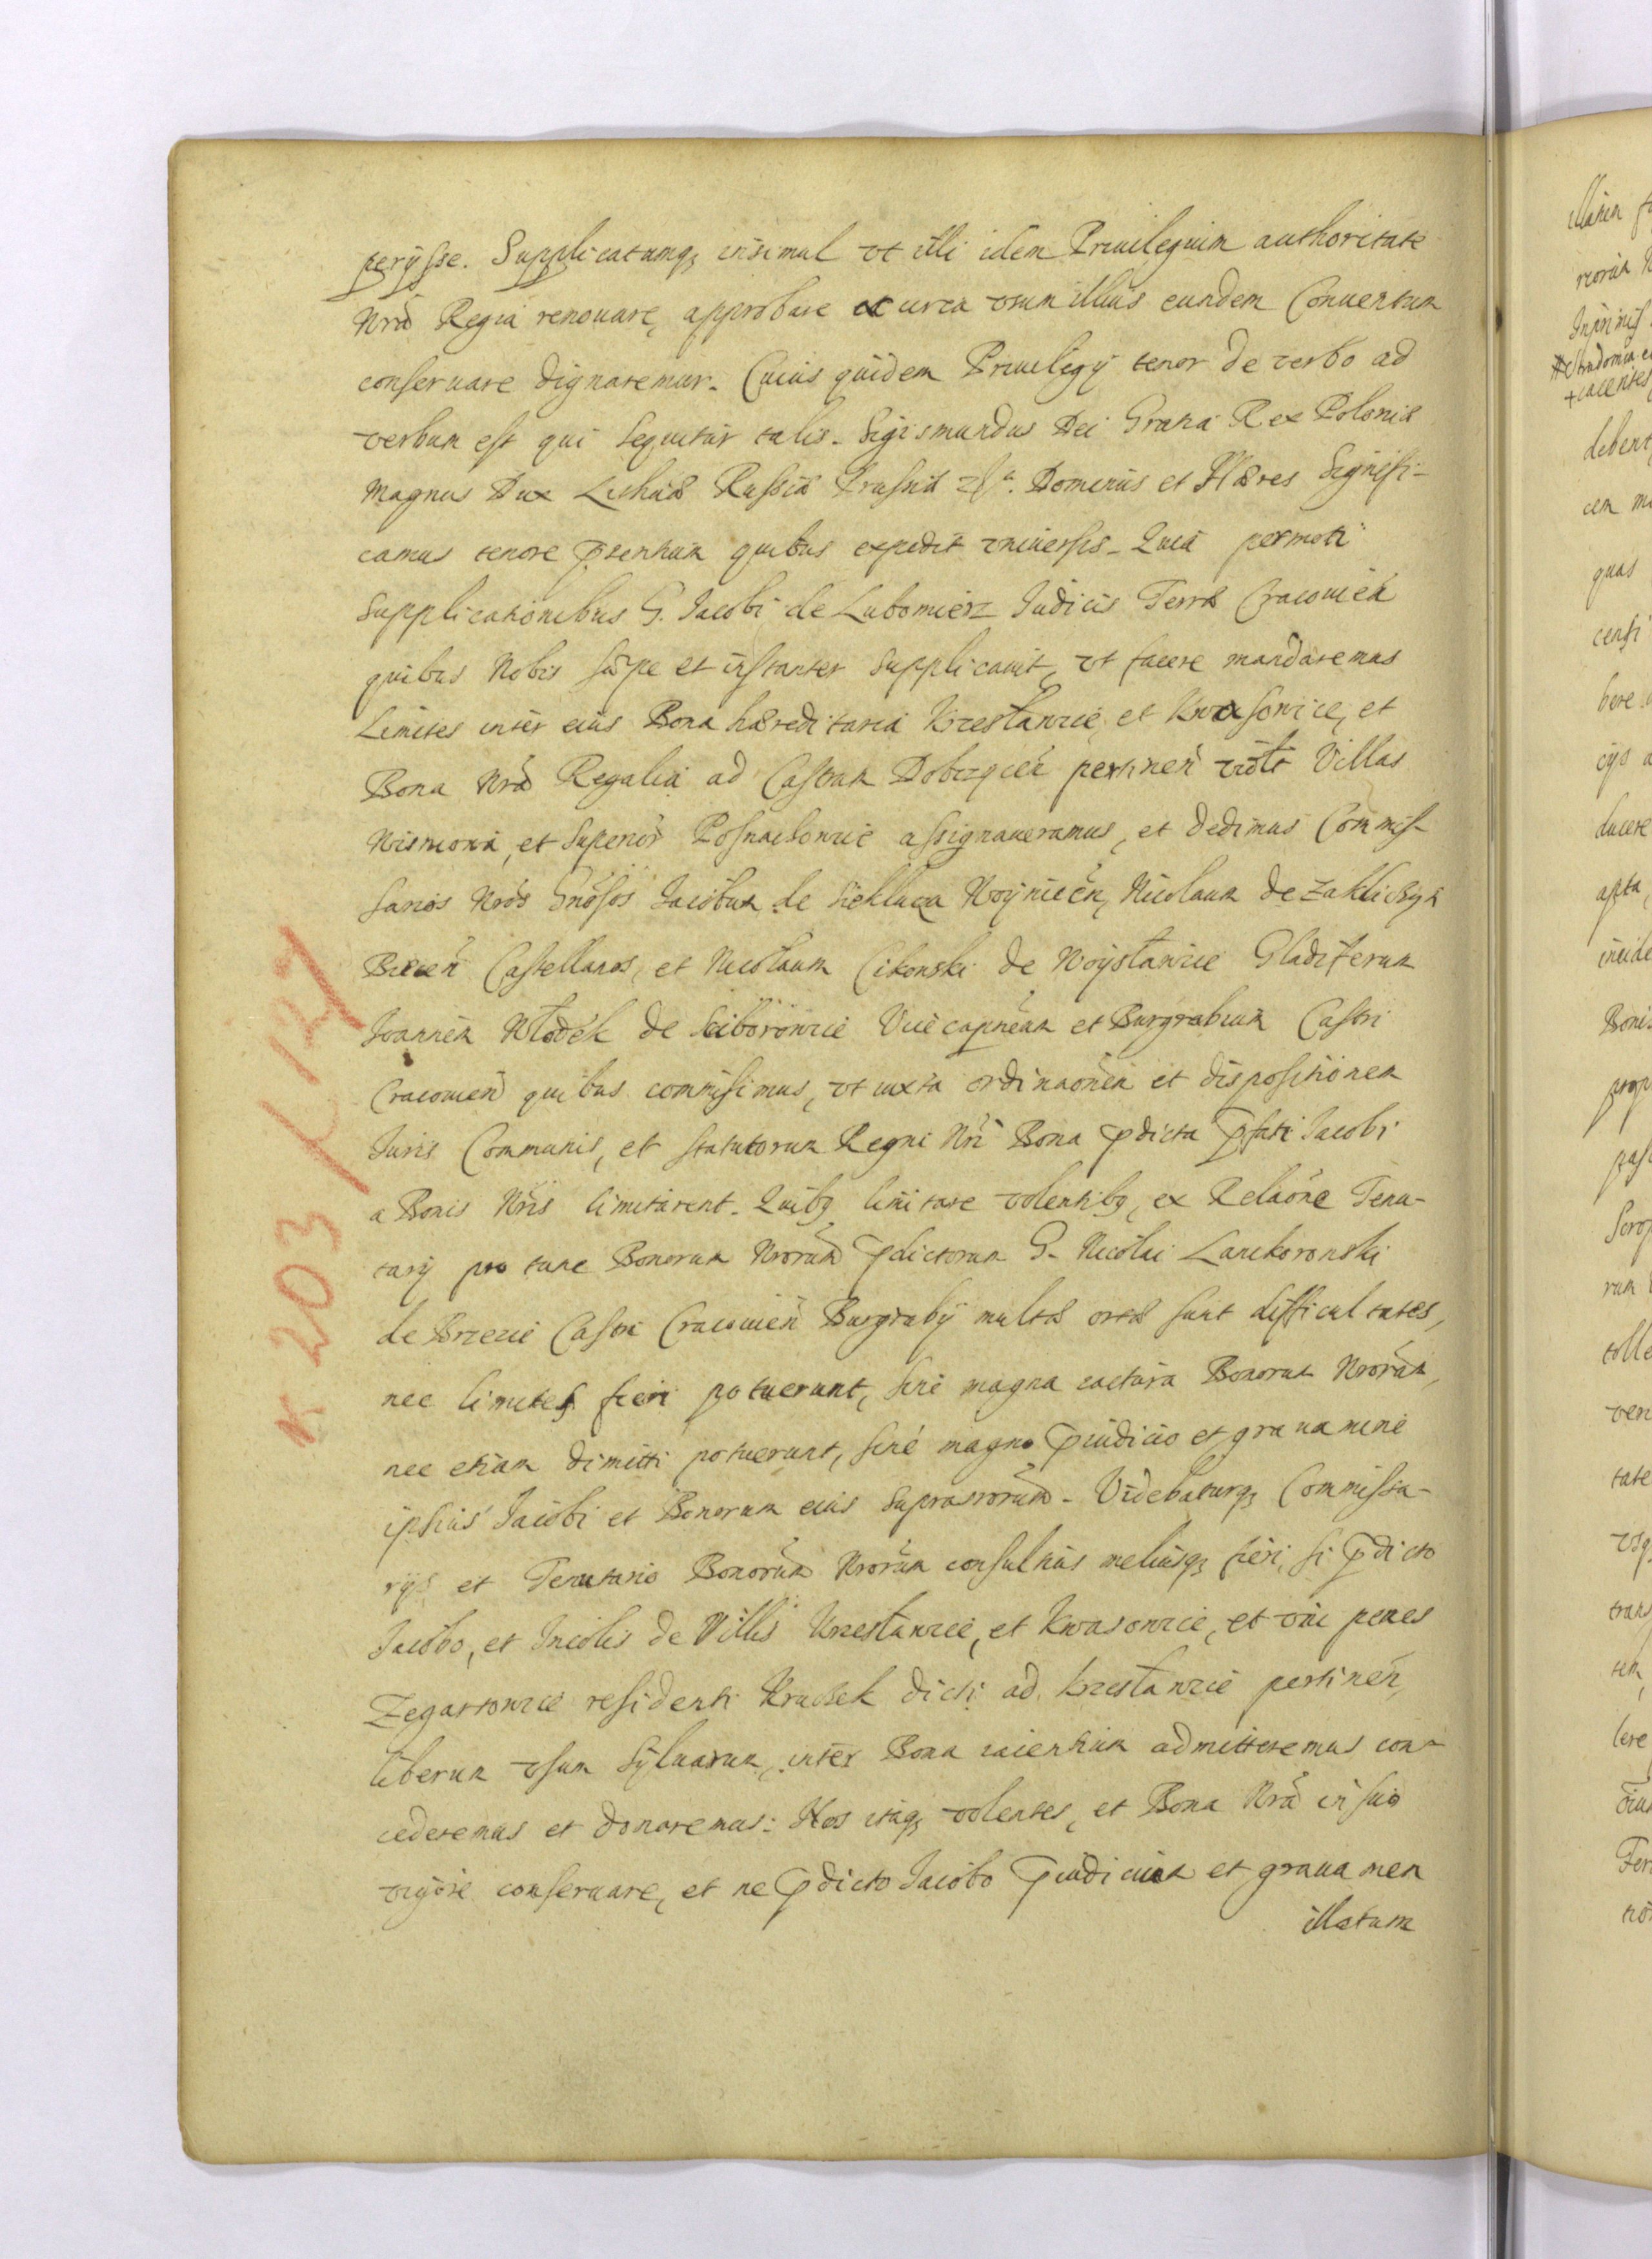 perijsse. Supplicatumq₃ insimul vt illi idem Priuilegium authoritate
Nrã Regia renouare, approbare et circa vsum illius eundem Conuentum
conseruare dignaremur. Cuius quidem Priuilegij tenor de verbo ad
verbum est qui sequitur talis. Sigismundus Dei Gratia Rex Poloniæ
Magnus Dux Lithuæ Russiæ Prussiæ Dominus et Hæres Signifi-
camus tenore p̃sentium quibus expedit vniuersis. Quia permoti
supplicationibus G. Jacobi de Lubomierz Judicis Terræ Cracouień
quibus Nobis sæpe et instanter supplicauit, vt facere mandaremus
Limites inter eius Bona hæreditaria Krzesławice, et Kwasowice, et
Bona Nrã Regalia ad Castrum Dobczycen̄ pertinen̄ vidlt Villas
Wisniowa, et superior Posnachowice assignaueramus, et dedimus Commis-
sarios Nrõs Gnõsos Jacobum de Siekluca Woynicen̄, Nicolaum de Zakliczyn
Biecen̄ Castellanos, et Nicolaum Cikowski de Woysławice Gladiferum
Joannem Włodek de Sciborowice Vicecapneum et Burgrabium Castri
Cracouien̄ quibus commisimus, vt iuxta ordinaõnem et dispositionem
Juris Communis, et statutorum Regni Nrĩ Bona p̃dicta p̃fati Jacobi
a Bonis Nrĩs limitarent. Quibq̨ limitare volentibq̨, ex Relaõne Tenu-
tarij pro tunc Bonorum Nrorum p̃dictorum G. Nicolai Lanckoronski
de Brzezie Castri Cracouien̄ Burgrabij multæ ortæ sunt difficultates,
nec limites fieri potuerunt, sine magna iactura Bonorum Nrorum,
nec etiam dimitti potuerunt, sine magno p̃iudicio et grauamine
ipsius Jacobi et Bonorum eius suprascrorum. Videbaturq₃ Commissa-
rijs et Tenutario Bonorum Nrorum consultius meliusq₃ fieri, si p̃dicto
Jacobo, et Incolis de Villis Krzesławice, et Kwasowice, et vni penes
Zegartowice residenti Kruczek dicti ad Krzesławice pertinen̄,
liberum vsum syluarum, inter Bona iacentium admitteremus con-
cederemus et donaremus: Nos itaq₃ volentes, et Bona Nrã in suo
vigore conseruare, et ne p̃dicto Jacobo p̃iudicium et grauamen
illatum
K 203